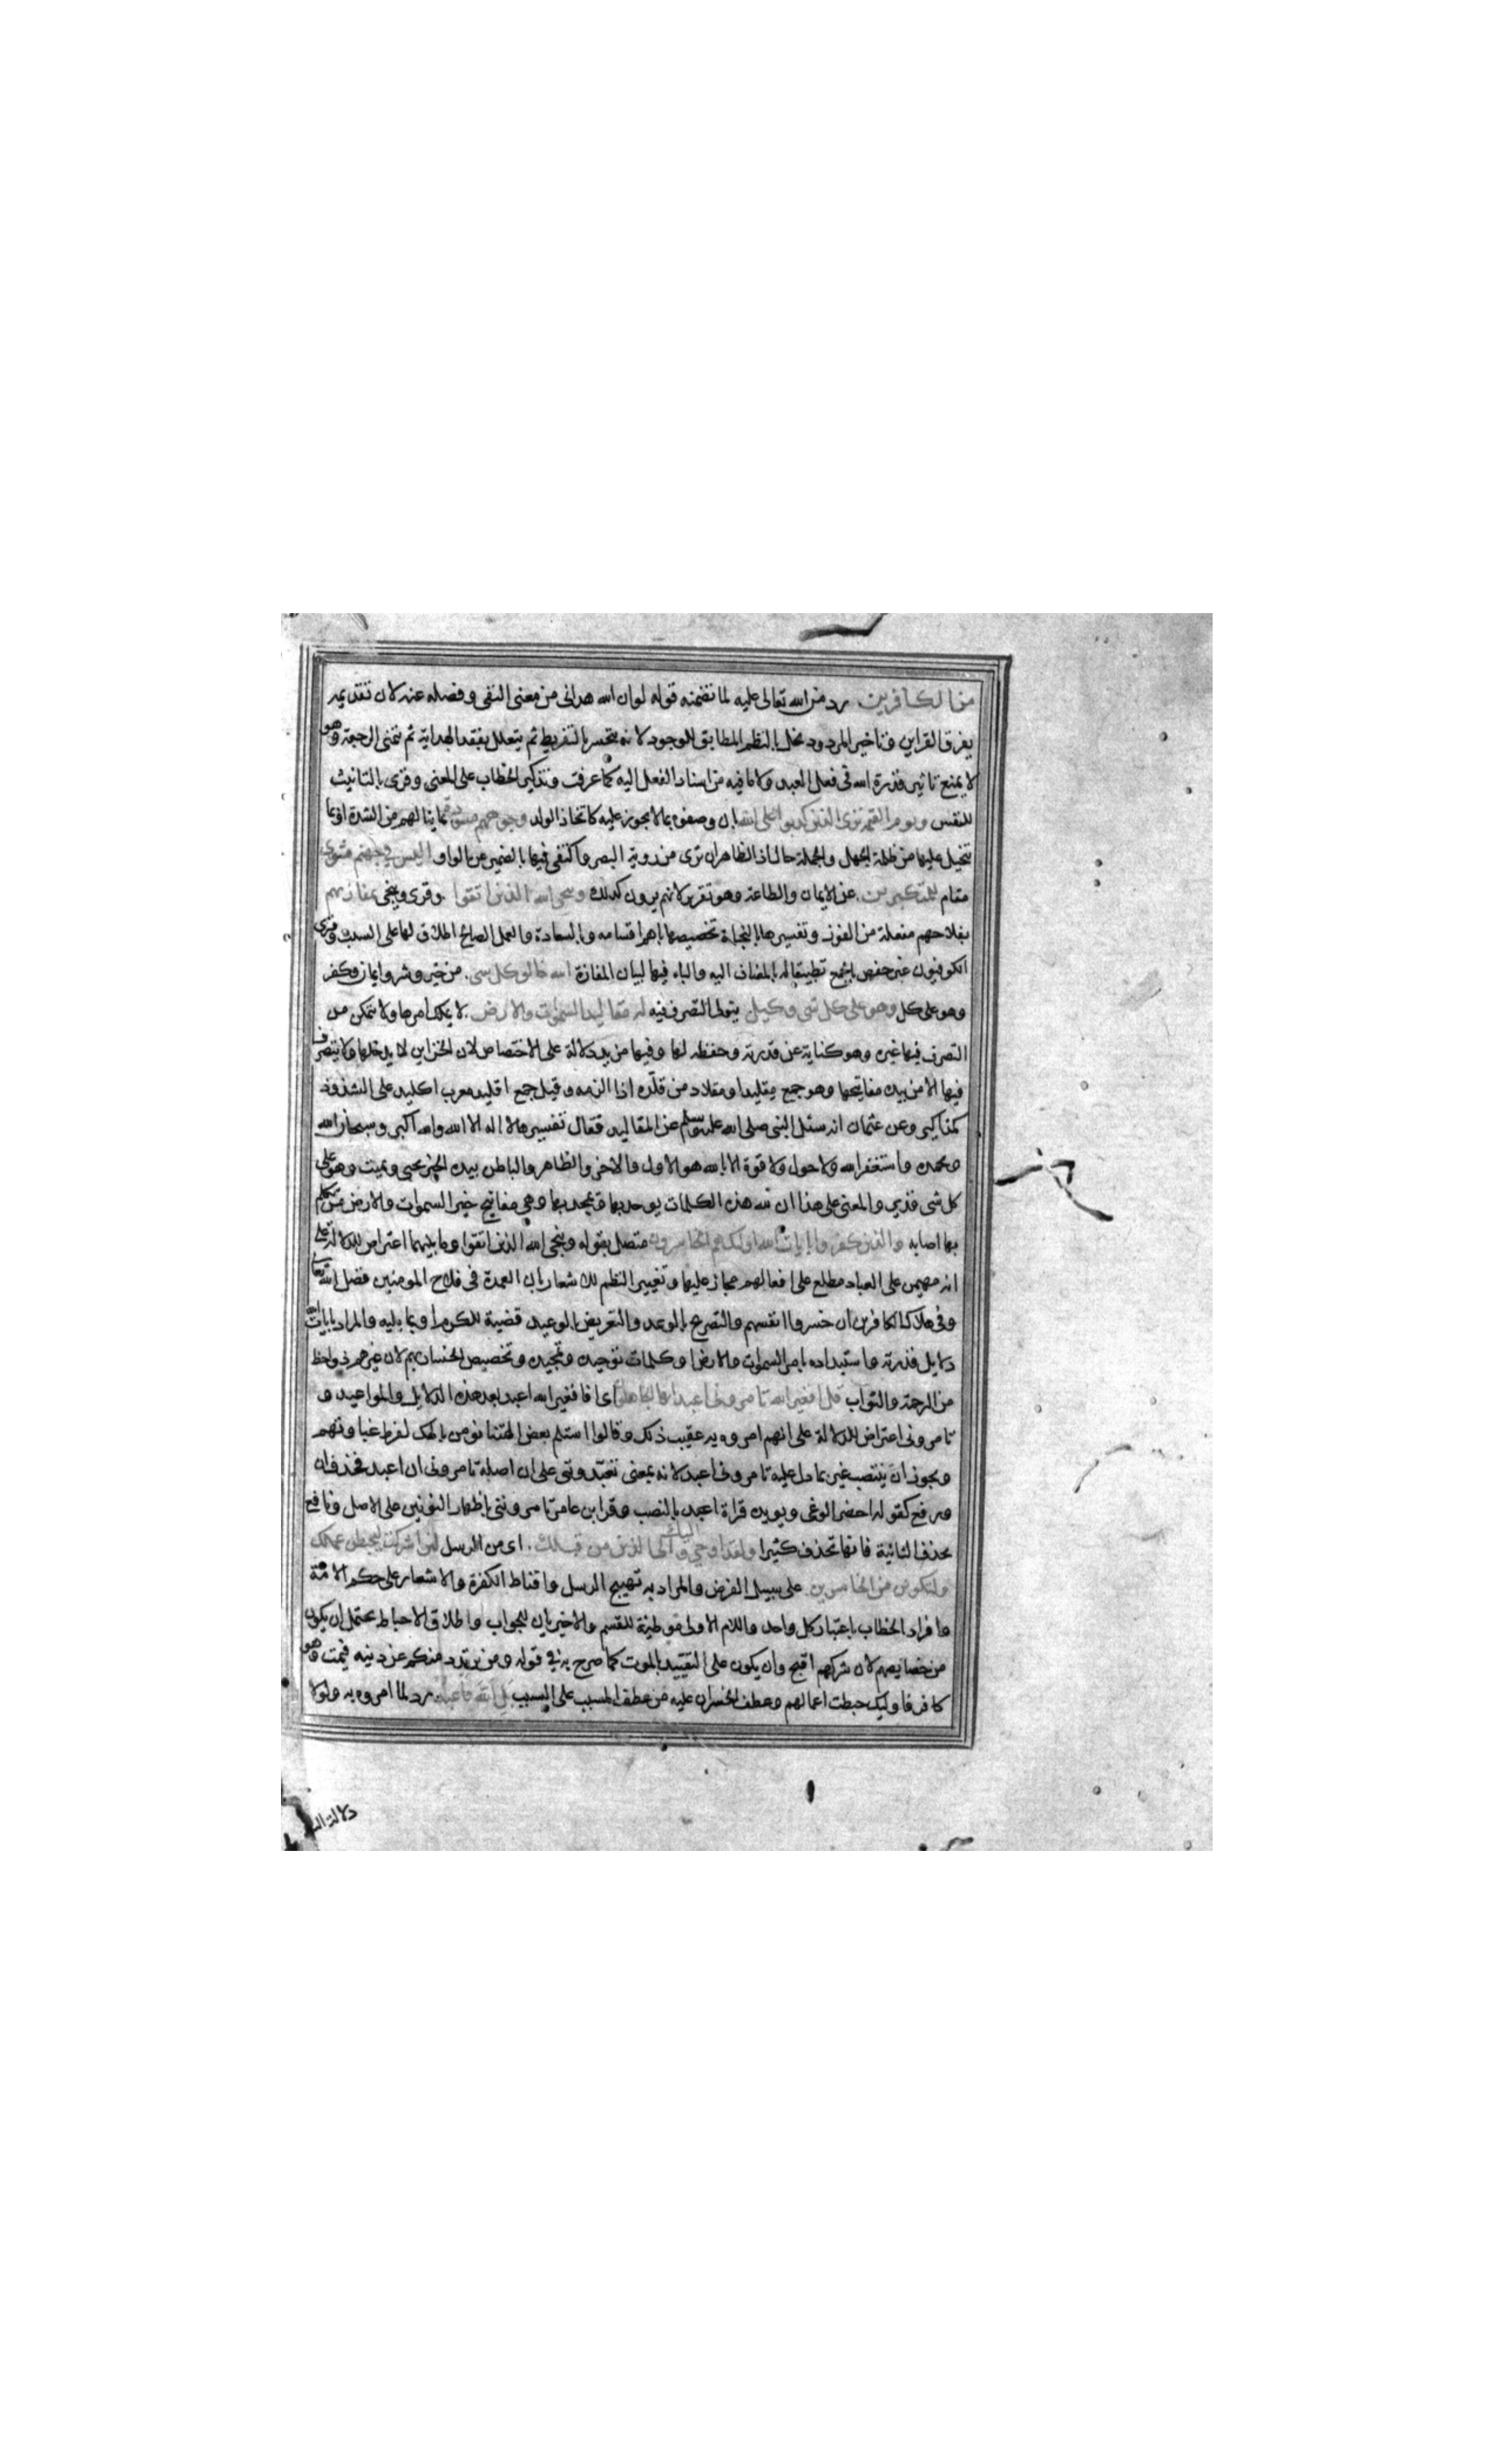 من الكافرين رد من الله تعالى عليه لما تضمنه قوله لو ان الله هدانى من معنى النفى وفصله عنه لان تقديمه
يفرق القراين وتاخير المردود يخل بالنظم المطابق للوجود لانه يتحسر بالتفريط ثم يتعلل بفقد الهداية ثم يتمنى الرجعة وهو
لا يمنع تاثير قدرة الله فى فعل العبد ولا ما فيه من اسناد الفعل اليه كما عرفت وتذكير الخطاب على المعنى وقرى بالتانيث
للنفس ويوم القيمة ترى الذين كذبوا على الله بان وصفوه بما لا يجوز عليه كاتخاذ الولد وجوههم مسودة بما ينالهم من الشدة او بما
يتخيل عليها من ظلمة الجهل والجملة حال اذ الظاهر ان ترى من روية البصر واكتفى فيها بالضمير عن الواو اليس فى جهنم مثوى
مقام للمتكبرين عن الايمان والطاعة وهو تقرير لانهم يرون كذلك وينجى الله الذين اتقوا وقرى وينجى بمفازتهم
بفلاحهم مفعلة من الفوز وتفسيرها بالنجاة تخصيصها باهم اقسامه وبالسعادة والعمل الصالح اطلاق لها على السبب وقرى
الكوفيون غير حفص بالجمع تطبيقا له بالمضاف اليه والباء فيها لبيان المفازة الله خالق كل شى من خير وشر وايمان وكفر
وهو على كل وهو على كل شى وكيل يتولى التصرف فيه له مقاليد السموات والارض لا يملك امرها ولا يتمكن من
التصرف فيها غيره وهو كناية عن قدرته وحفظه لها وفيها مزيد دلالة على الاختصاص لان الخزاين لا يدخلها ولا يتصرف
فيها الا من بيده مفاتيحها وهو جمع مقليد او مقلاد من قلده اذا الزمه وقيل جمع اقليد معرب اكليد على الشذوذ
كمذاكير وعن عثمان انه سئل النبى صلى الله عليه وسلم عن المقاليد فقال تفسيرها لا اله الا الله والله اكبر وسبحان الله
وبحمده واستغفر الله ولا حول ولا قوة الا بالله هو الاول والاخر والظاهر والباطن بيده الخير يحيى ويميت وهو على
كل شى قدير والمعنى على هذا ان لله هذه الكلمات يوحد بها ويمجد بها وهى مفاتيح خير السموات والارض من تكلم
بها اصابه والذين كفروا بايات الله اولئك هم الخاسرون متصل بقوله وينجى الله الذين اتقوا وما بينهما اعتراض للدلالة على
انه مهيمن على العباد مطلع على افعالهم مجاز عليها وتغيير النظم للاشعار بان العمدة فى فلاح المومنين فضل الله تعالى
وفى هلاك الكافرين ان خسروا انفسهم والتصريح بالوعد والتعريض بالوعيد قضية للكرم او بما يليه والمراد بايات الله
دلايل قدرته واستبداده بامر السموات والارض او كلمات توحيده وتمجيده وتخصيص الخسار بهم لان غيرهم ذو احظ
من الرحمة والثواب قل افغير الله تامرونى اعبد ايها الجاهلون اى افغير الله اعبد بعد هذه الدلايل والمواعيد و
تامرونى اعتراض للدلالة على انهم امروه به عقيب ذلك وقالوا استلم بعض الهتنا نومن بالهك لفرط غباوتهم
ويجوز ان ينتصب غير بما دل عليه تامرونى اعبد لانه بمعنى تعبدوننى على ان اصله تامروننى ان اعبد فحذف ان
ورفع كقوله احضر الوغى ويويده قراة اعبد بالنصب وقرا ابن عامر تامروننى باظهار النونين على الاصل ونافع
بحذف الثانية فانها تحذف كثيرا ولقد اوحى اليك والى الذين من قبلك اى من الرسل لئن اشركت ليحبطن عملك
ولتكونن من الخاسرين على سبيل الفرض والمراد به تهييج الرسل واقناط الكفرة والاشعار على حكم الامة
وافراد الخطاب باعتبار كل واحد واللام الاولى موطئة للقسم والاخيريان للجواب واطلاق الاحباط يحتمل ان يكون
من خصايصهم لان شركهم اقبح وان يكون على التقييد بالموت كما صرح به فى قوله ومن يرتدد منكم عن دينه فيمت وهو
كافر فاوليك حبطت اعمالهم وعطف الخسران عليه من عطف المسبب على السبب بل الله فاعبد رد لما امروه به ولولا
دلالة